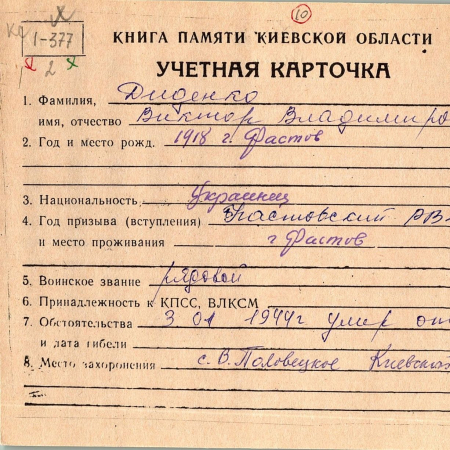 10
1-377
2
КНИГА ПАМЯТИ КИЕВСКОЙ ОБЛАСТИ
УЧЕТНАЯ КАРТОЧКА
1. Фамилия, Диденко
имя, отчество Виктор Владимиро
2. Год и место рожд. 1918 г. Фастов
3. Национальность украинец
4. Год призыва (вступления) Фастовский РВ
и место проживания г Фастов
5. Воинское звание рядовой
6. Принадлежность к КПСС, ВЛКСМ
7. Обстоятельства 3 01 1944г умер от
и дата гибели
8. Место захоронения с. В. Половецкое Киевской